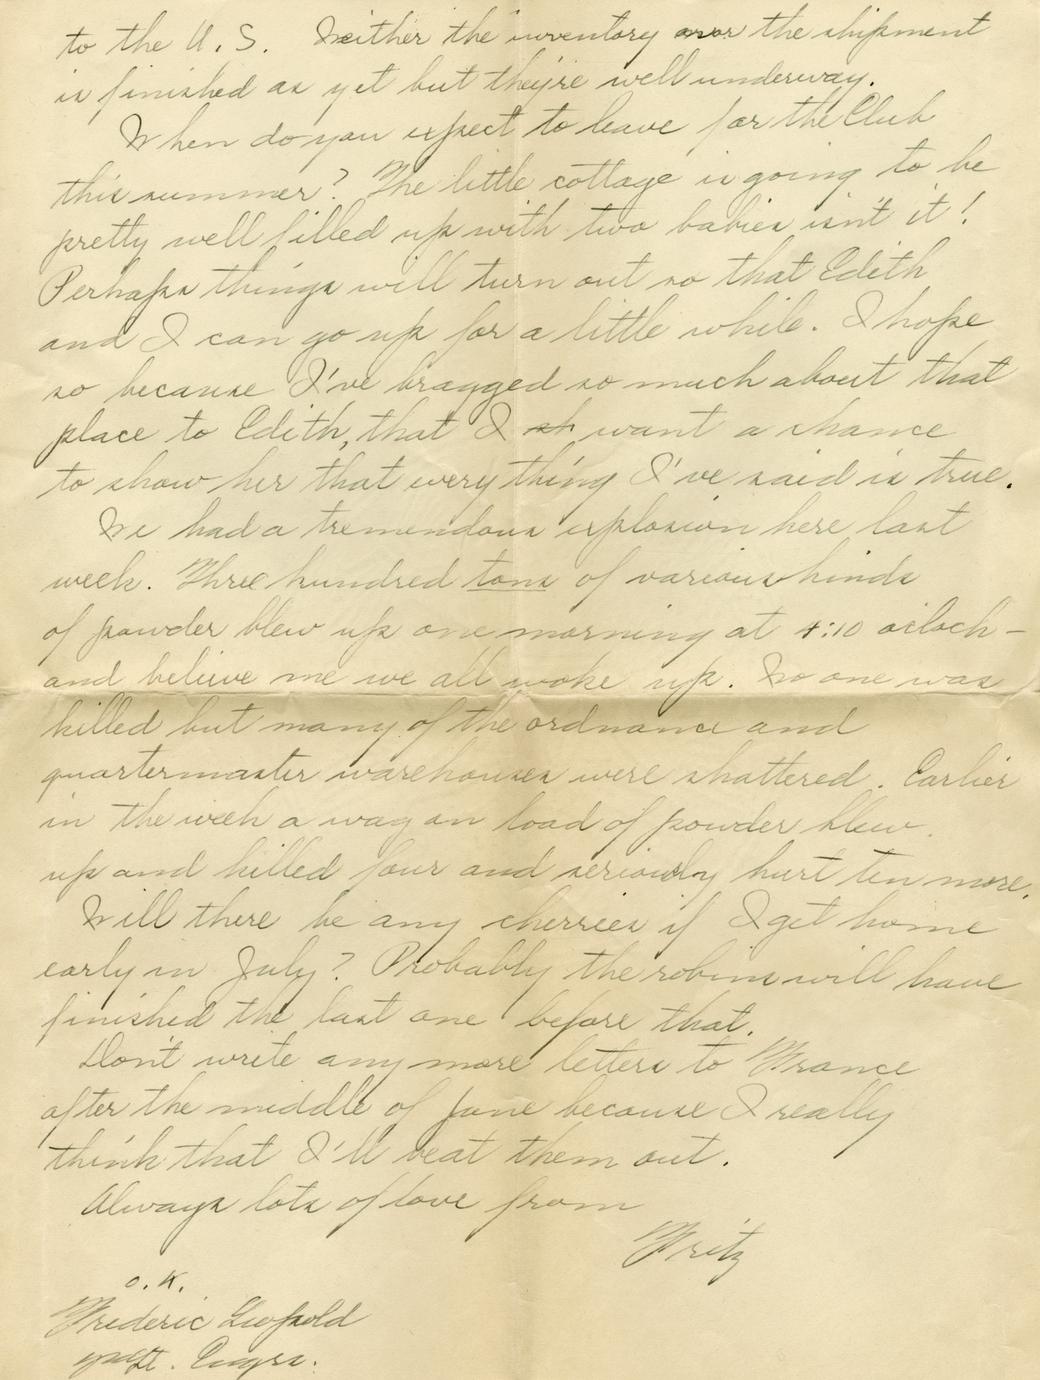 to the U.S. Neither the inventory nor the shipment
is finished as yet but they're well underway.
When do you expect to leave for the Club
this summer? The little cottage is going to be
pretty well filled up with two babies isn't it!
Perhaps things will turn out so that Edith
and I can go up for a little while. I hope
so because I've bragged so much about that
place to Edith, that I sh want a chance
to show her that everything I've said is true.
We had a tremendous explosion here last
week. Three hundred tons of various kinds
of powder blew up one morning at 4:10 oclock –
and believe me we all woke up. No one was
killed but many of the ordnance and
quartermaster warehouses were shattered. Earlier
in the week a wagon load of powder blew
up and killed four and seriously hurt ten more.
Will there be any cherries if I get home
early in July? Probably the robins will have
finished the last one before that.
Don't write any more letters to France
after the middle of June because I really
think that I'll beat them out.
Always lots of love from
Fritz
O.K.
Frederic Leopold
Lt. Engrs.